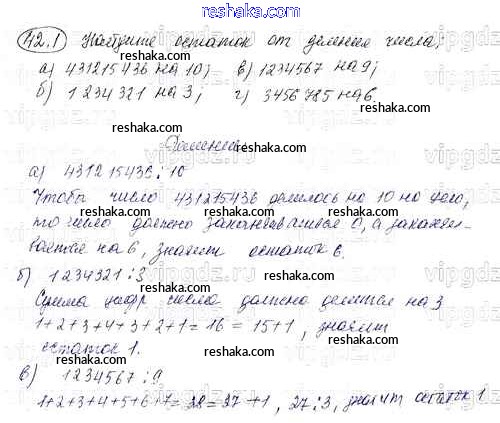 reshaka.com
42.1 Найдите остаток от деления числа:
а) 431215436 на 10; в) 1234567 на 9;
б) 1234321 на 3; г) 3456785 на 6.
reshaka.com
Решение
а) 431215436 : 10
Чтобы число 431215436 делилось на 10 на цело,
то число должно заканчиваться 0, а заканчи-
вается на 6, значит остаток 6.
б) 1234321 : 3
Сумма цифр числа должна делится на 3
1+2+3+4+3+2+1=16=15+1, значит
остаток 1.
в) 1234567 : 9
1+2+3+4+5+6+7=28=27+1, 27:3, значит остаток 1